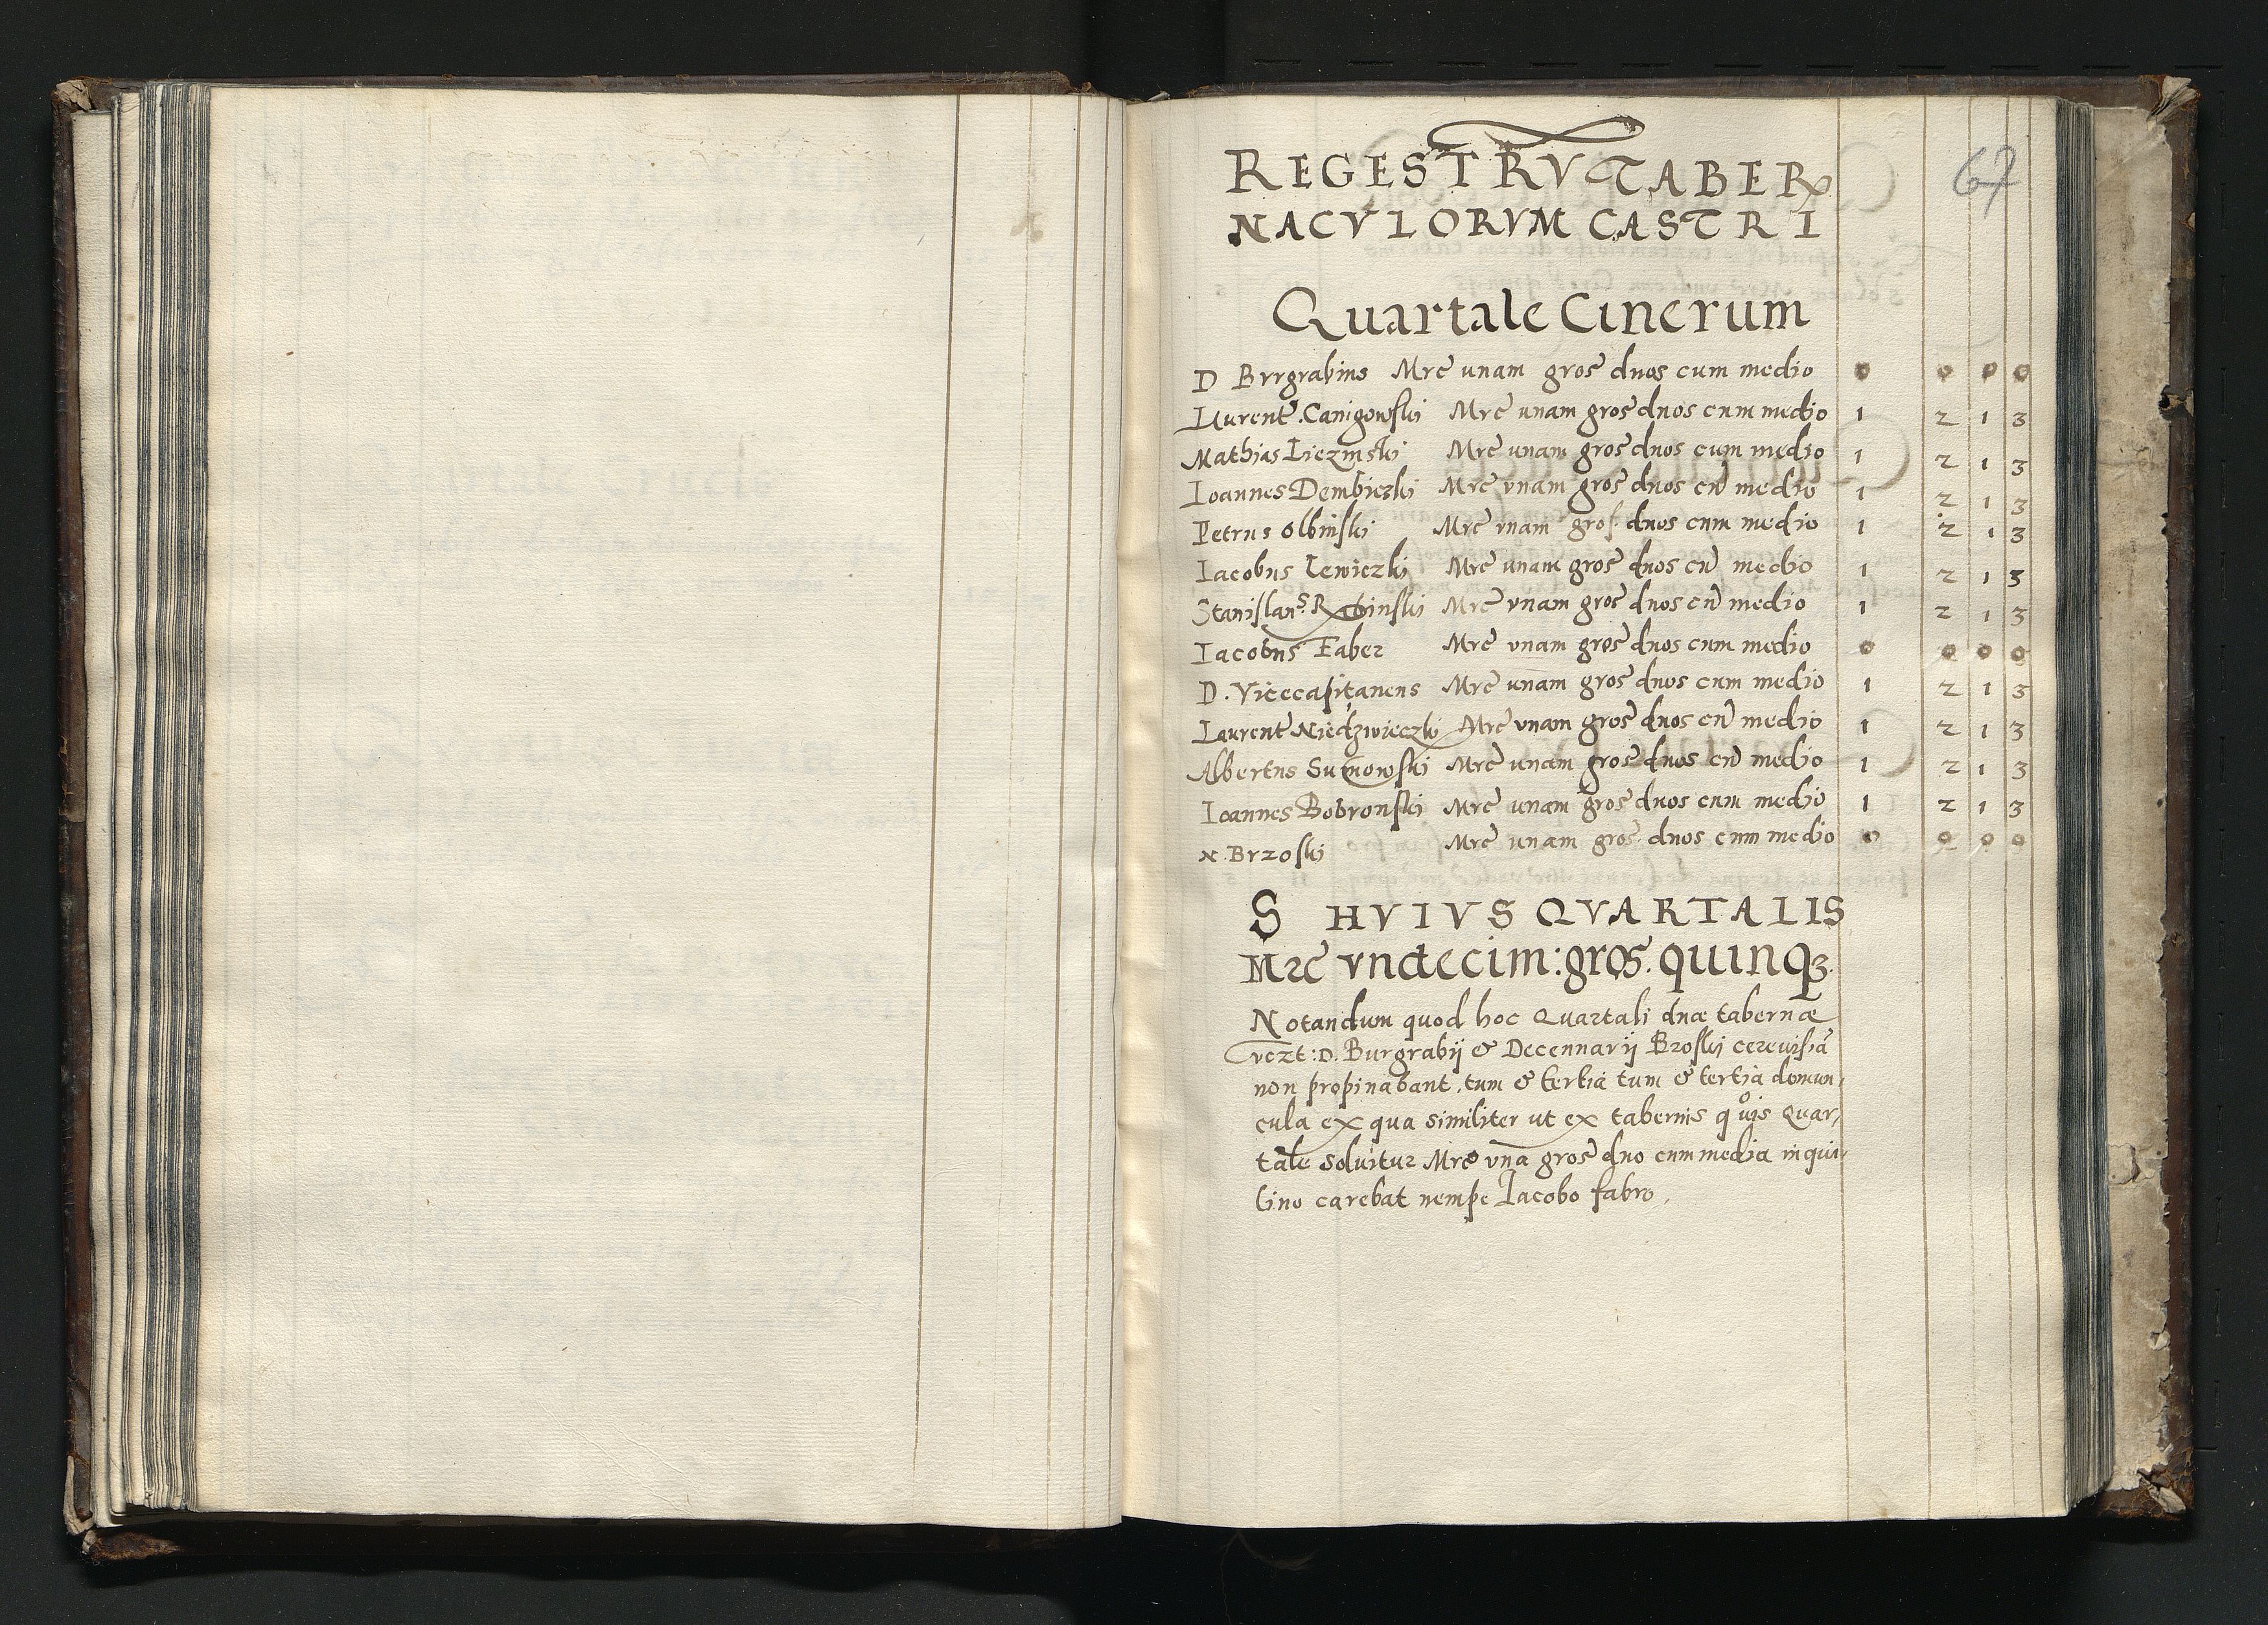 67
REGESTRV̄ TABER
NACVLORVM CASTRI
Quartale Cinerum
D Bvrgrabius Mrc̄ unam gros̄ duos cum medio 0 0 0 0
Laurent᾿ Canigowski Mrc̄ unam gros̄ duos cum medio 1 2 1 3
Mathias Liczinski Mrc̄ unam gros̄ duos cum medio 1 2 1 3
Ioannes Dembiczki Mrc̄ vnam gros̄ duos cū medio 1 2 1 3
Petrus Olbinski Mrc̄ vnam gros. duos cum medio 1 2 1 3
Iacobus Lewiczki Mrc̄ unam gros̄ duos cū medio 1 2 1 3
Stanislaus Rabinski Mrc̄ vnam gros̄ duos cū medio 1 2 1 3
Iacobus Faber Mrc̄ vnam gros̄ duos cum medio 0 0 0 0
D. Vicecapitaneus Mrc̄ unam gros̄ duos cum medio 1 2 1 3
Laurent᾿ Niedzwieczki Mrc̄ vnam gros̄ duos cū medio 1 2 1 3
Albertus Sumowski Mrc̄ unam gros̄ duos cū medio 1 2 1 3
Ioannes Bobronski Mrc̄ unam gros̄ duos cum medio 1 2 1 3
N. Brzoski Mrc̄ unam gros. duos cum medio 0 0 0 0
S HVIVS QVARTALIS
Mrc̄ vndecim: gros̄. quinqꝫ.
Notandum quod hoc Quartali duæ tabernæ
vczt: D. Burgrabij & Decennarij Broskij cereuisiā
non propinabant, tum & tertia tum & tertia domun,
cula ex qua similiter ut ex tabernis quis Quar,
tale soluitur Mrc̄ vna gros̄ duo cum media inqui,
lino carebat nempe Iacobo fabro,